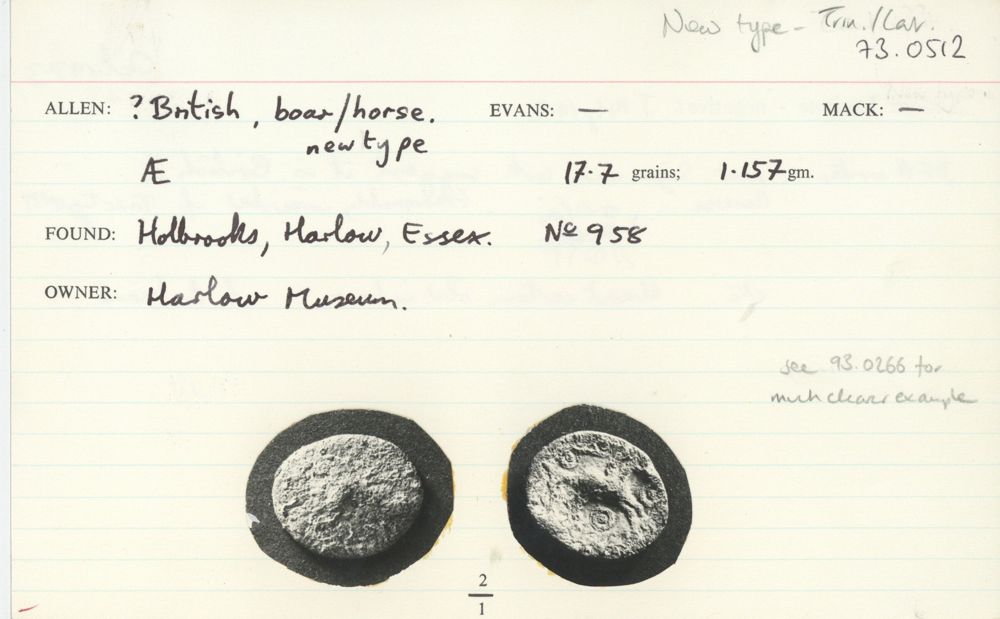 New type - Trin./Cat.
73.0512
ALLEN: ? British, boar/horse. EVANS: — MACK: —
new type
Æ 17.7 grains; 1.157 gm.
FOUND: Holbrooks, Harlow, Essex. No 958
OWNER: Harlow Museum.
see 93.0266 for
much clearer example
2
1